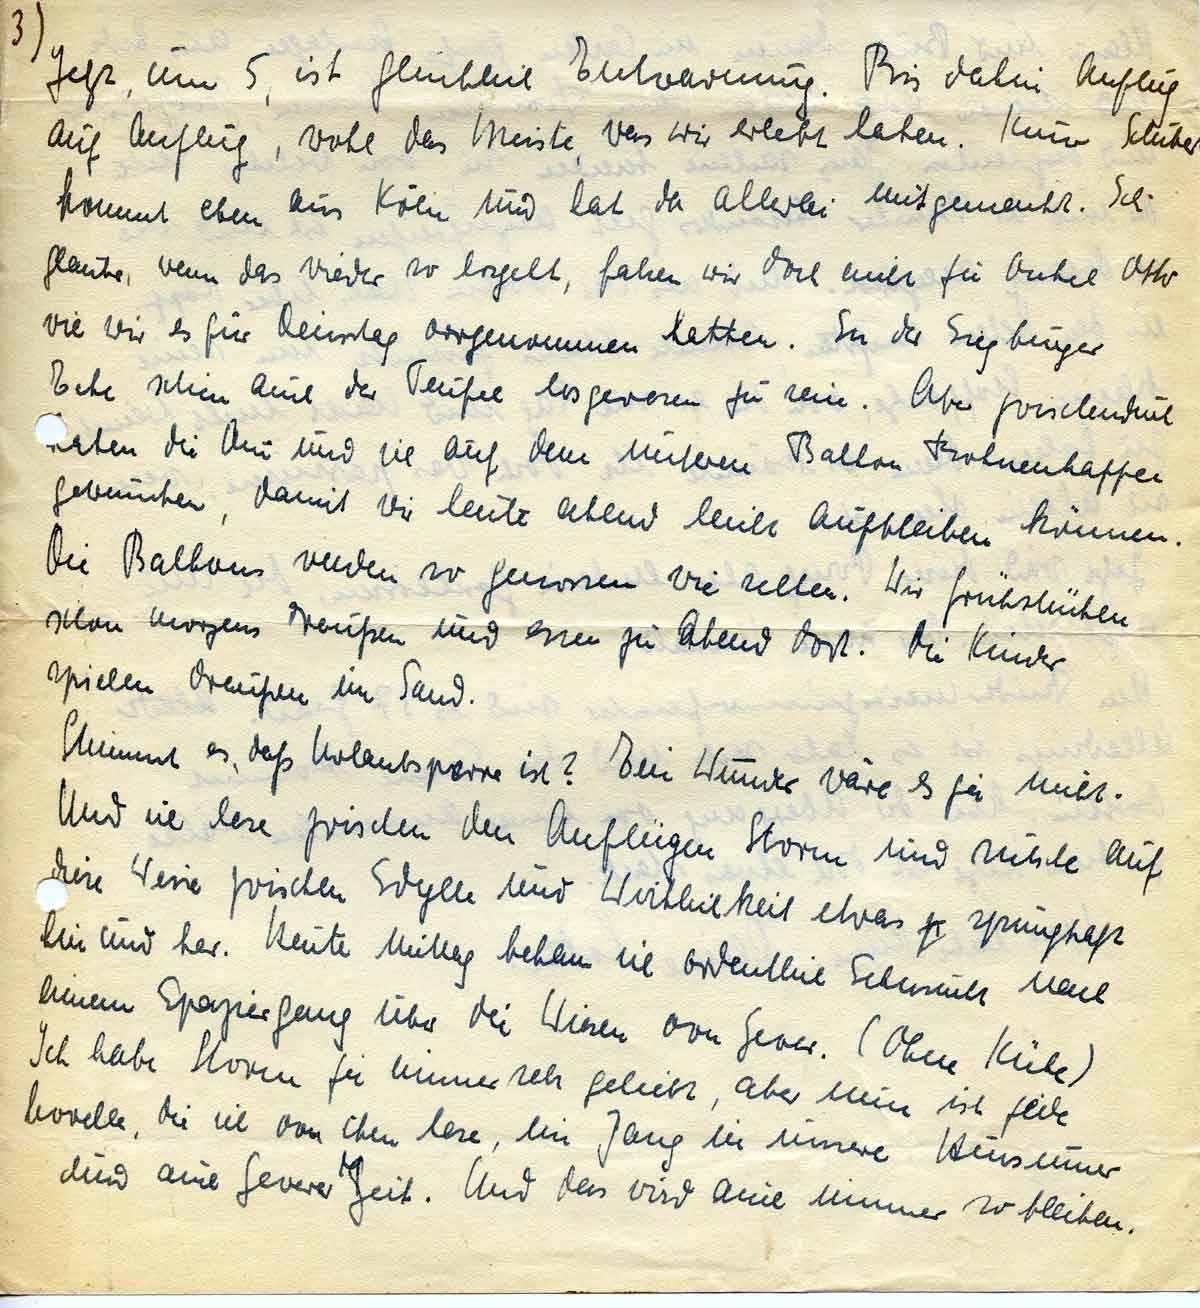 3)
Jetzt, um 5, ist glücklich Entwarnung. Bis dahin Anflug
auf Anflug, wohl das Meiste, was wir erlebt haben. Kurier
kommt eben aus Köln und hat da allerlei mitgemacht. Ich
glaube, wenn das wieder so losgeht, fahren wir doch nicht zu Onkel Otto
wie wir es für Dienstag vorgenommen hatten. In der Siegburger
Ecke schien auch der Teufel losgewesen zu sein. Aber zwischendurch
haben die und ich auf dem unteren Balkon Bohnenkaffee
getrunken, damit wir heute abend leicht aufbleiben können.
Die Balkons werden so genossen wie selten. Wir frühstücken
schon morgens draußen und essen zu Abend dort. Die Kinder
spielen draußen im Sand.
Stimmt es, daß Urlaubsperre ist? Ein Wunder wäre es ja nicht.
Und ich lese zwischen den Anflügen Storm und rutsche auf
diese Weise zwischen Idylle und Wirklichkeit etwas sprunghaft
hin und her. Heute Mittag bekam ich ordentlich Sehnsucht nach
einem Spaziergang über die Wiesen von Jever. (Ohne Kühe)
Ich habe Storm ja immer sehr geliebt, aber nun ist jede
Novelle, die ich von ihm lese, ein Gang in unsere Husumer
und auch Jeversche Zeit. Und das wird auch immer so bleiben.